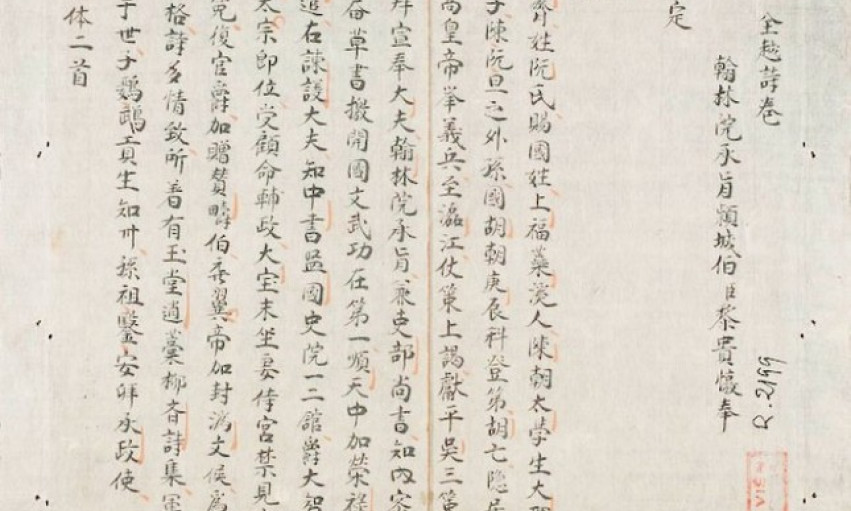 全越詩卷
R.2199
翰林院承旨頴城伯臣黎貴惇奉
定
齊姓阮氏賜國姓上福蘂溪人陳朝太學生大
子陳阮旦之外孫國胡朝庚辰科登第胡亡隱居
高皇帝举義兵至瀘江仗策上謁獻平吳三策
拜宣奉大夫翰林院承旨兼吏部尚書知内密
畚草書撥開國文武功在第一順天中加榮祿
追右諫議大夫知中書监國史院一二舘爵大夫
太宗即位受顧命輔政大宝末坐妻侍宮禁見
冤復官爵加贈賛疇伯 翼帝加封济文侯爲
格詩多情致所著有玉堂遺藁柳斉詩集軍
于世子鸚鵡貢生知州孫祖鑒安拜承政使
体二首